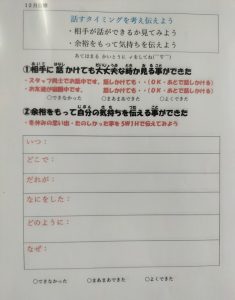 12月目標
話すタイミングを考え伝えよう
・相手が話ができるか見てみよう
・余裕をもって気持ちを伝えよう
あてはまる かいとうに ✓をしてね(^▽^)
①相手に話かけても大丈夫な時か見る事ができた
・スタッフ同士でお話中です。 話しかけても・・(OK・あとで話しかける)
・お友達が宿題中です。 話しかけても・・(OK・あとで話しかける)
○できなかった ○まあまあできた ○よくできた
②余裕をもって自分の気持ちを伝える事ができた
・冬休みの思い出・たのしかった事を5W1Hで伝えてみよう
いつ:
どこで:
だれが:
なにをした:
どのように:
なぜ:
○できなかった ○まあまあできた ○よくできた